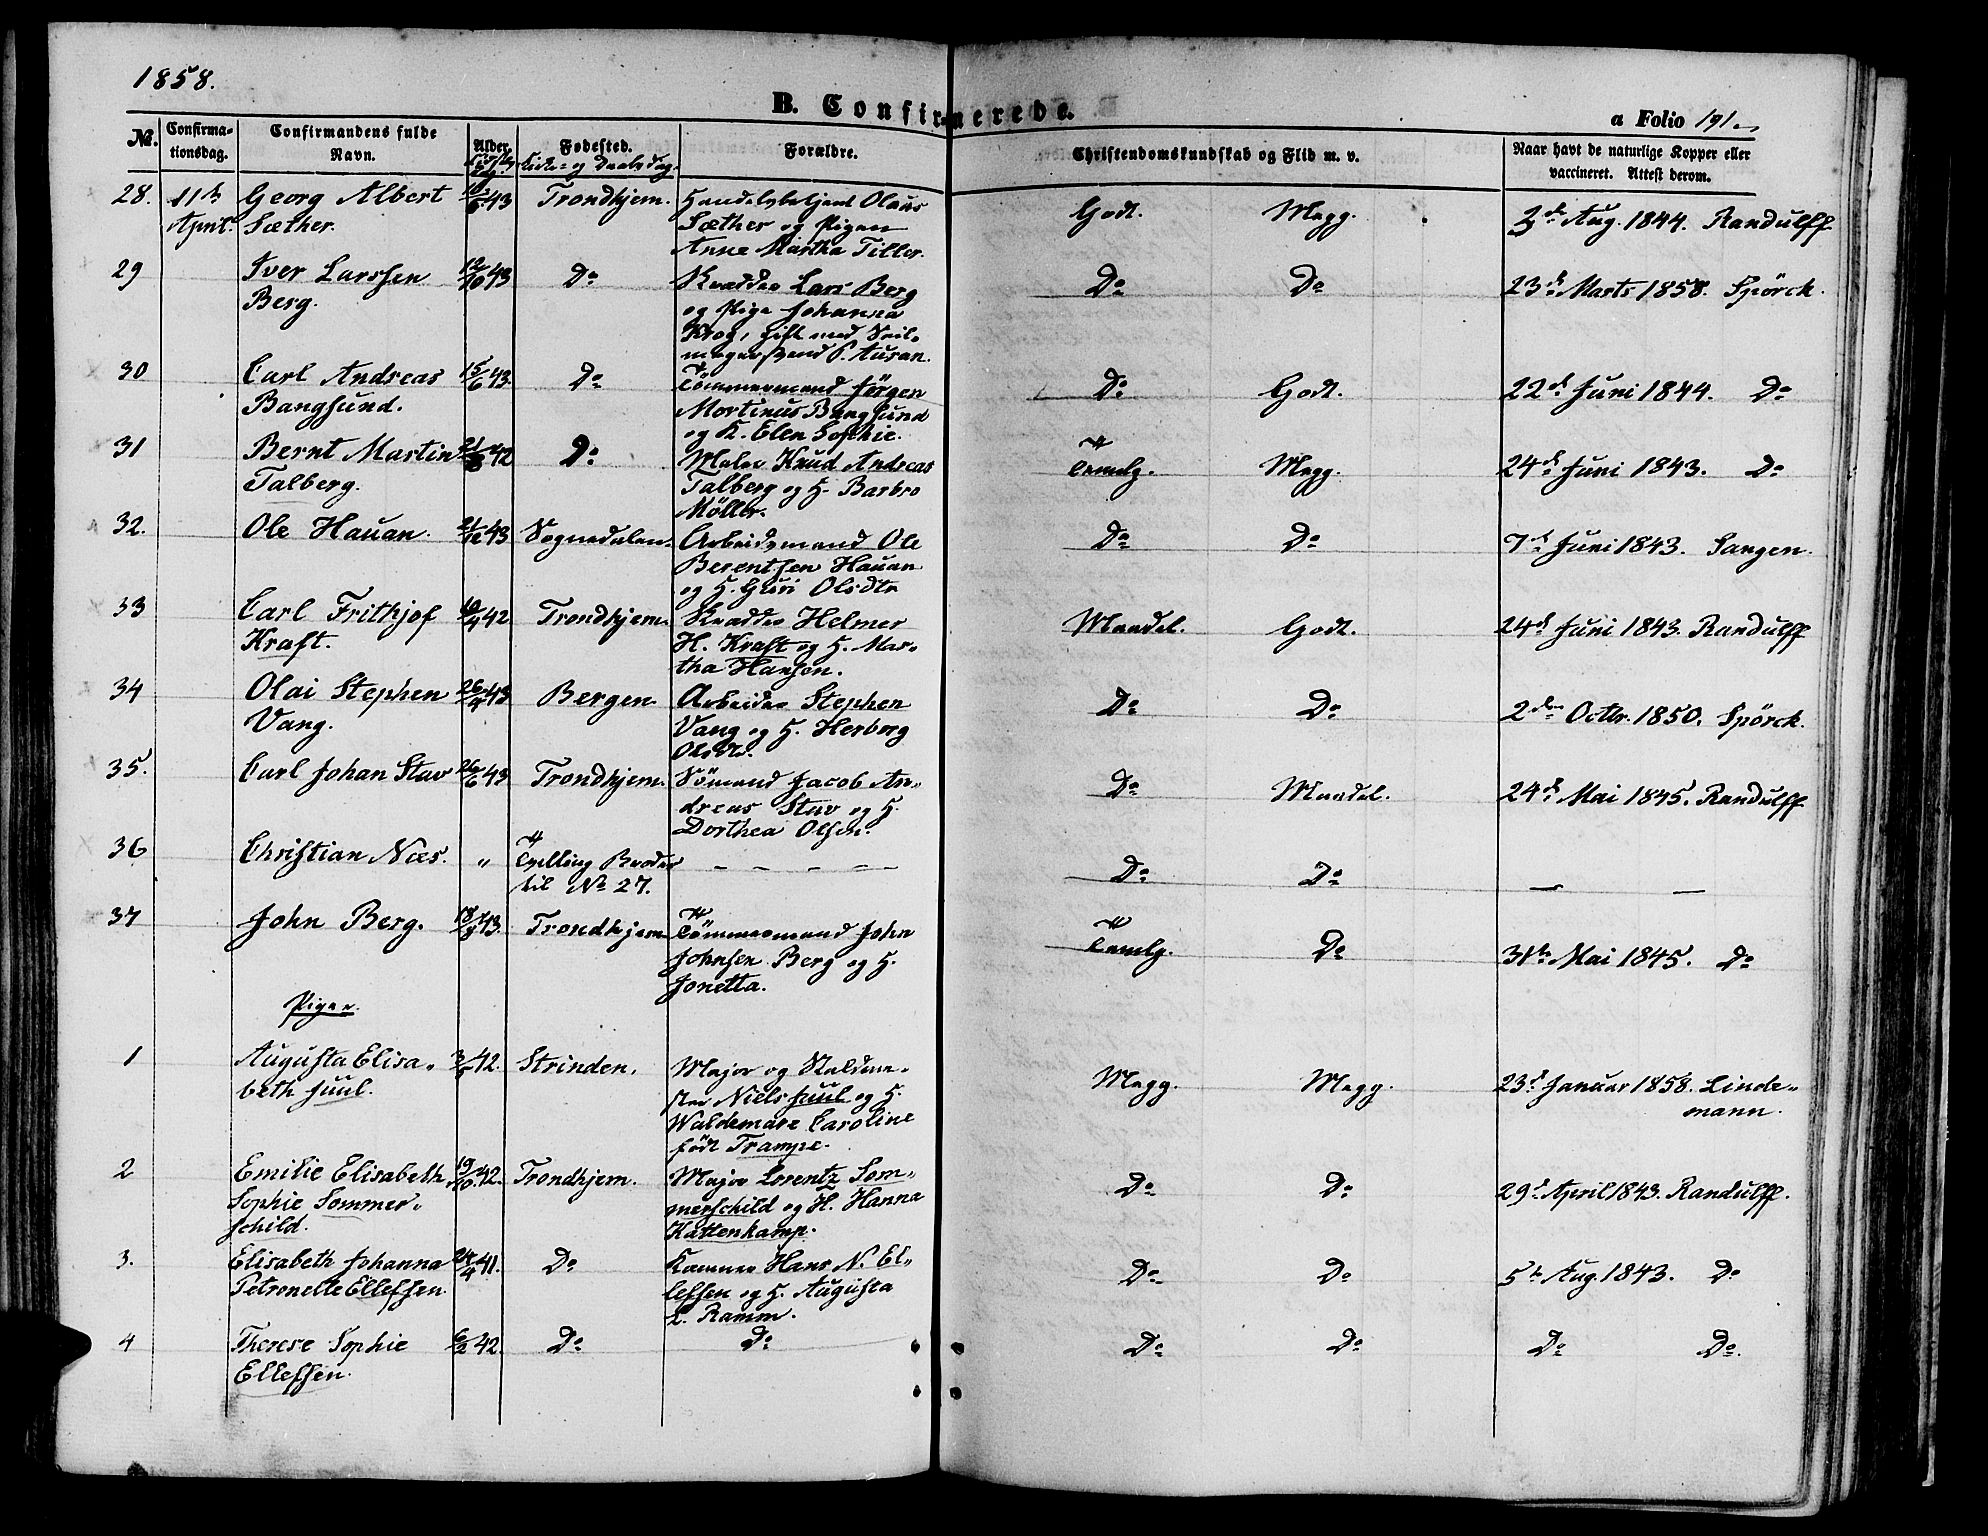 1858.
B. Confirmerede.
a Folio 191.
No.
Confirma-
tionsdag.
Confirmandens fulde
Navn.
Alder.
Fødested.
Forældre.
Christendomskundskab og Flid m. v.
Naar havt de naturlige Kopper eller
vaccineret. Attest derom.
28. 11te Georg Albert 43 Trondhjem. Handelsbetjent Olaus Godt. Megg. 3d Aug. 1844. Randulff.
April. Sæther. Sæther og Pigen
Anne Martha Tiller.
29 Iver Larssen 12/10 43 Do Skrædder Lars Berg Do Do 23d Marts 1858. Spörck.
Berg. og Pige Johanna
Krog, gift med Seil-
magersvend P. Ausan.
30 Carl Andreas 15/6 43 Do Tömmermand Jörgen Do Godt. 22d Juni 1844. Do
Bangsund. Mortinus Bangsund
og K. Elen Sophie.
31 Bernt Martin 42 Do Maler Knud Andreas Temlg. Megg. 24d Juni 1843. Do
Talberg. Talberg og H. Barbro
Möller.
32. Ole Hauan. 21/12 43 Sognedalen. Arbeidsmand Ole Do Do 7d Juni 1843. Sangen.
Berentsen Hauan
og H. Guri Olsdtr
33 Carl Frithjof 42 Trondhjem. Skrædder Helmer Maadel. Godt. 24d Juni 1843. Randulff
Kraft. H. Kraft og H. Mar-
tha Hansen.
34 Olai Stephen 43 Bergen. Arbeider Stephen Do Do 2den Octbr. 1850. Spörck.
Vang. Vang og H. Herborg
Olsdtr.
35. Carl Johan Stav 26/6 43 Trondhjem. Sömand Jacob An- Do Maadel. 24d Mai 1845. Randulff
dreas Stav og H.
Dorthea Olsen.
36 Christian Næs. " Tvilling Broder — — — — — Do Do — —
til No 27.
37 John Berg. 43. Trondhjem Tömmermand John Temlg. Do 31te Mai 1845. Do
Johnsen Berg og H.
Jonetta.
Piger.
1 Augusta Elisa- 42. Strinden. Major og Staldme- Megg. Megg. 23d Januar 1858. Linde-
beth Juul. ster Niels Juul og H. mann.
Waldemare Caroline
födt Trampe.
2 Emilie Elisabeth 19/10 42. Trondhjem. Major Lorentz Som- Do Do 29d April 1843. Randulff.
Sophie Sommer- merschild og H. Hanna
schild. Kattenkamp.
3. Elisabeth Johanna 24/4 41. Do Hans N. El- Do Do 5te Aug. 1843. Do
Petronelle Ellefsen. lefsen og H. Augusta
L. Ramm.
4 Therese Sophie 6/2 42. Do Do Do Do Do Do.
Ellefsen.